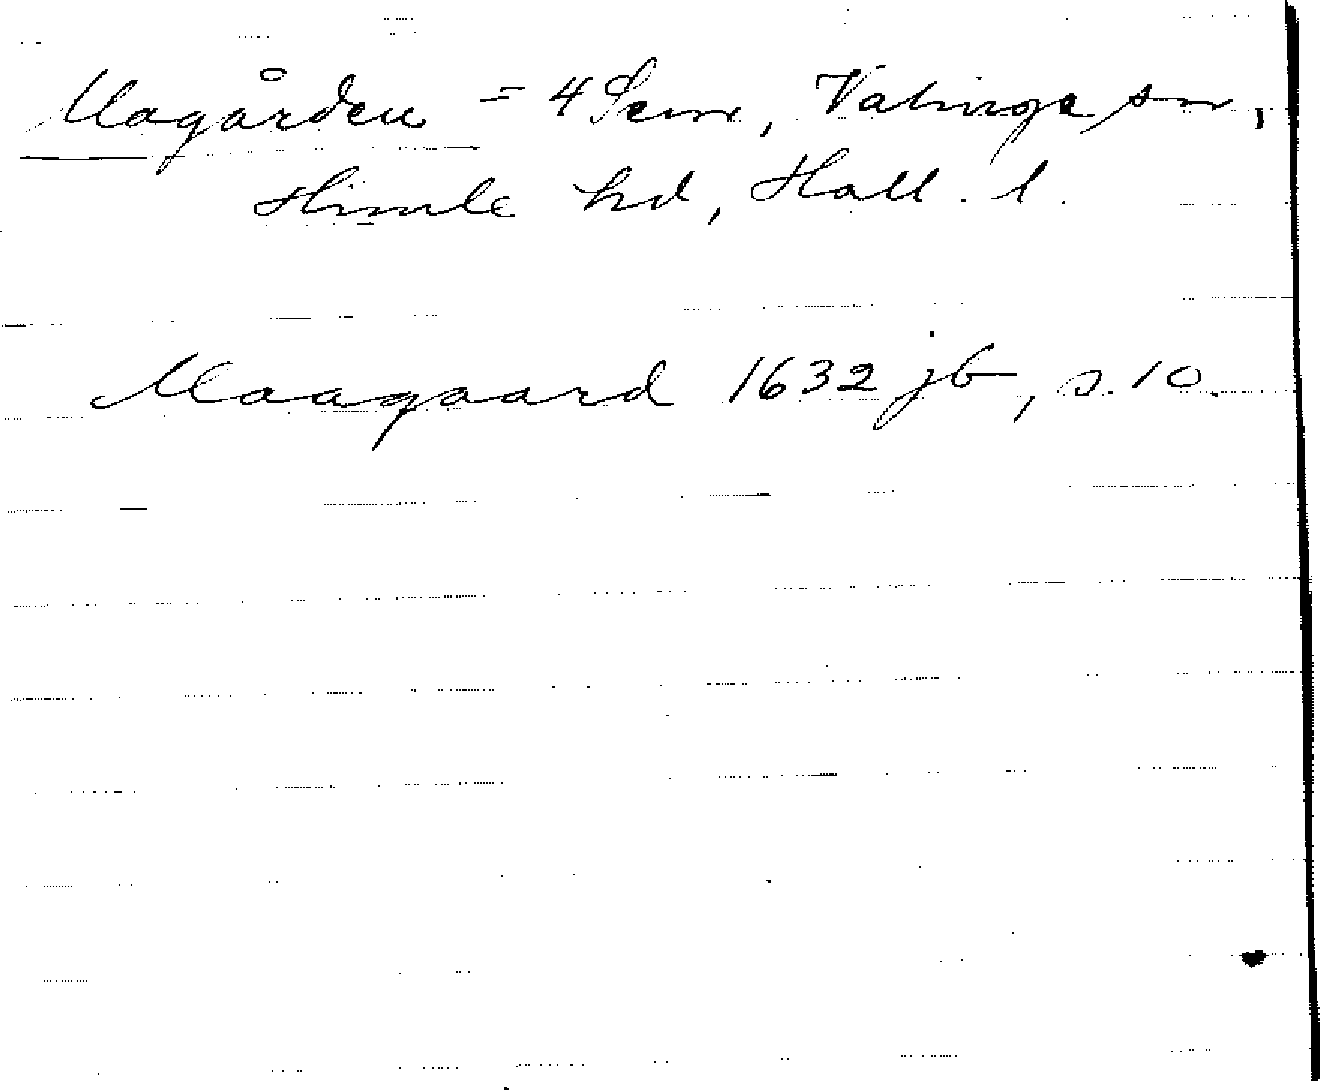 Magården = 4 Sem, Valinge sn,
Himle hd, Hall. l.
Maagaard 1632 jb, s. 10.